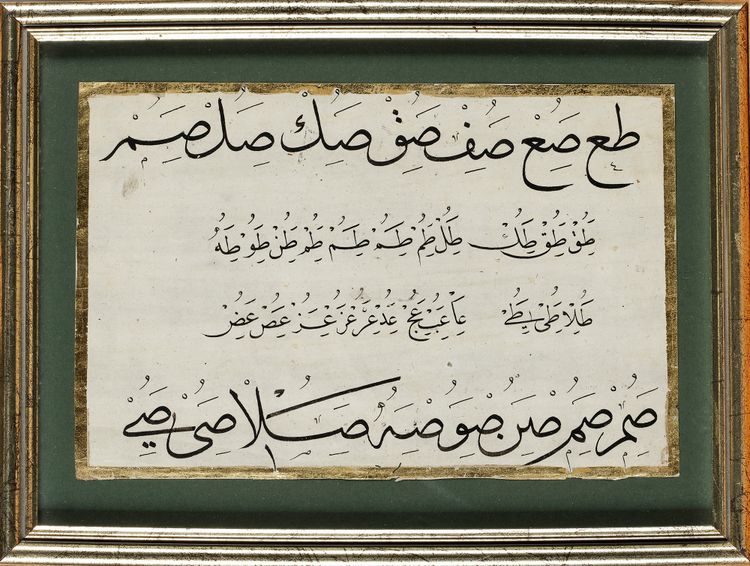 طع صع صف صق صك صل صم
طق طق طك طل طم طم طم طم طن طو طه
طلا طى طے عا عب عج عد عر عز عز عر عص عض
صم صم صن صو صه صلا صى صے